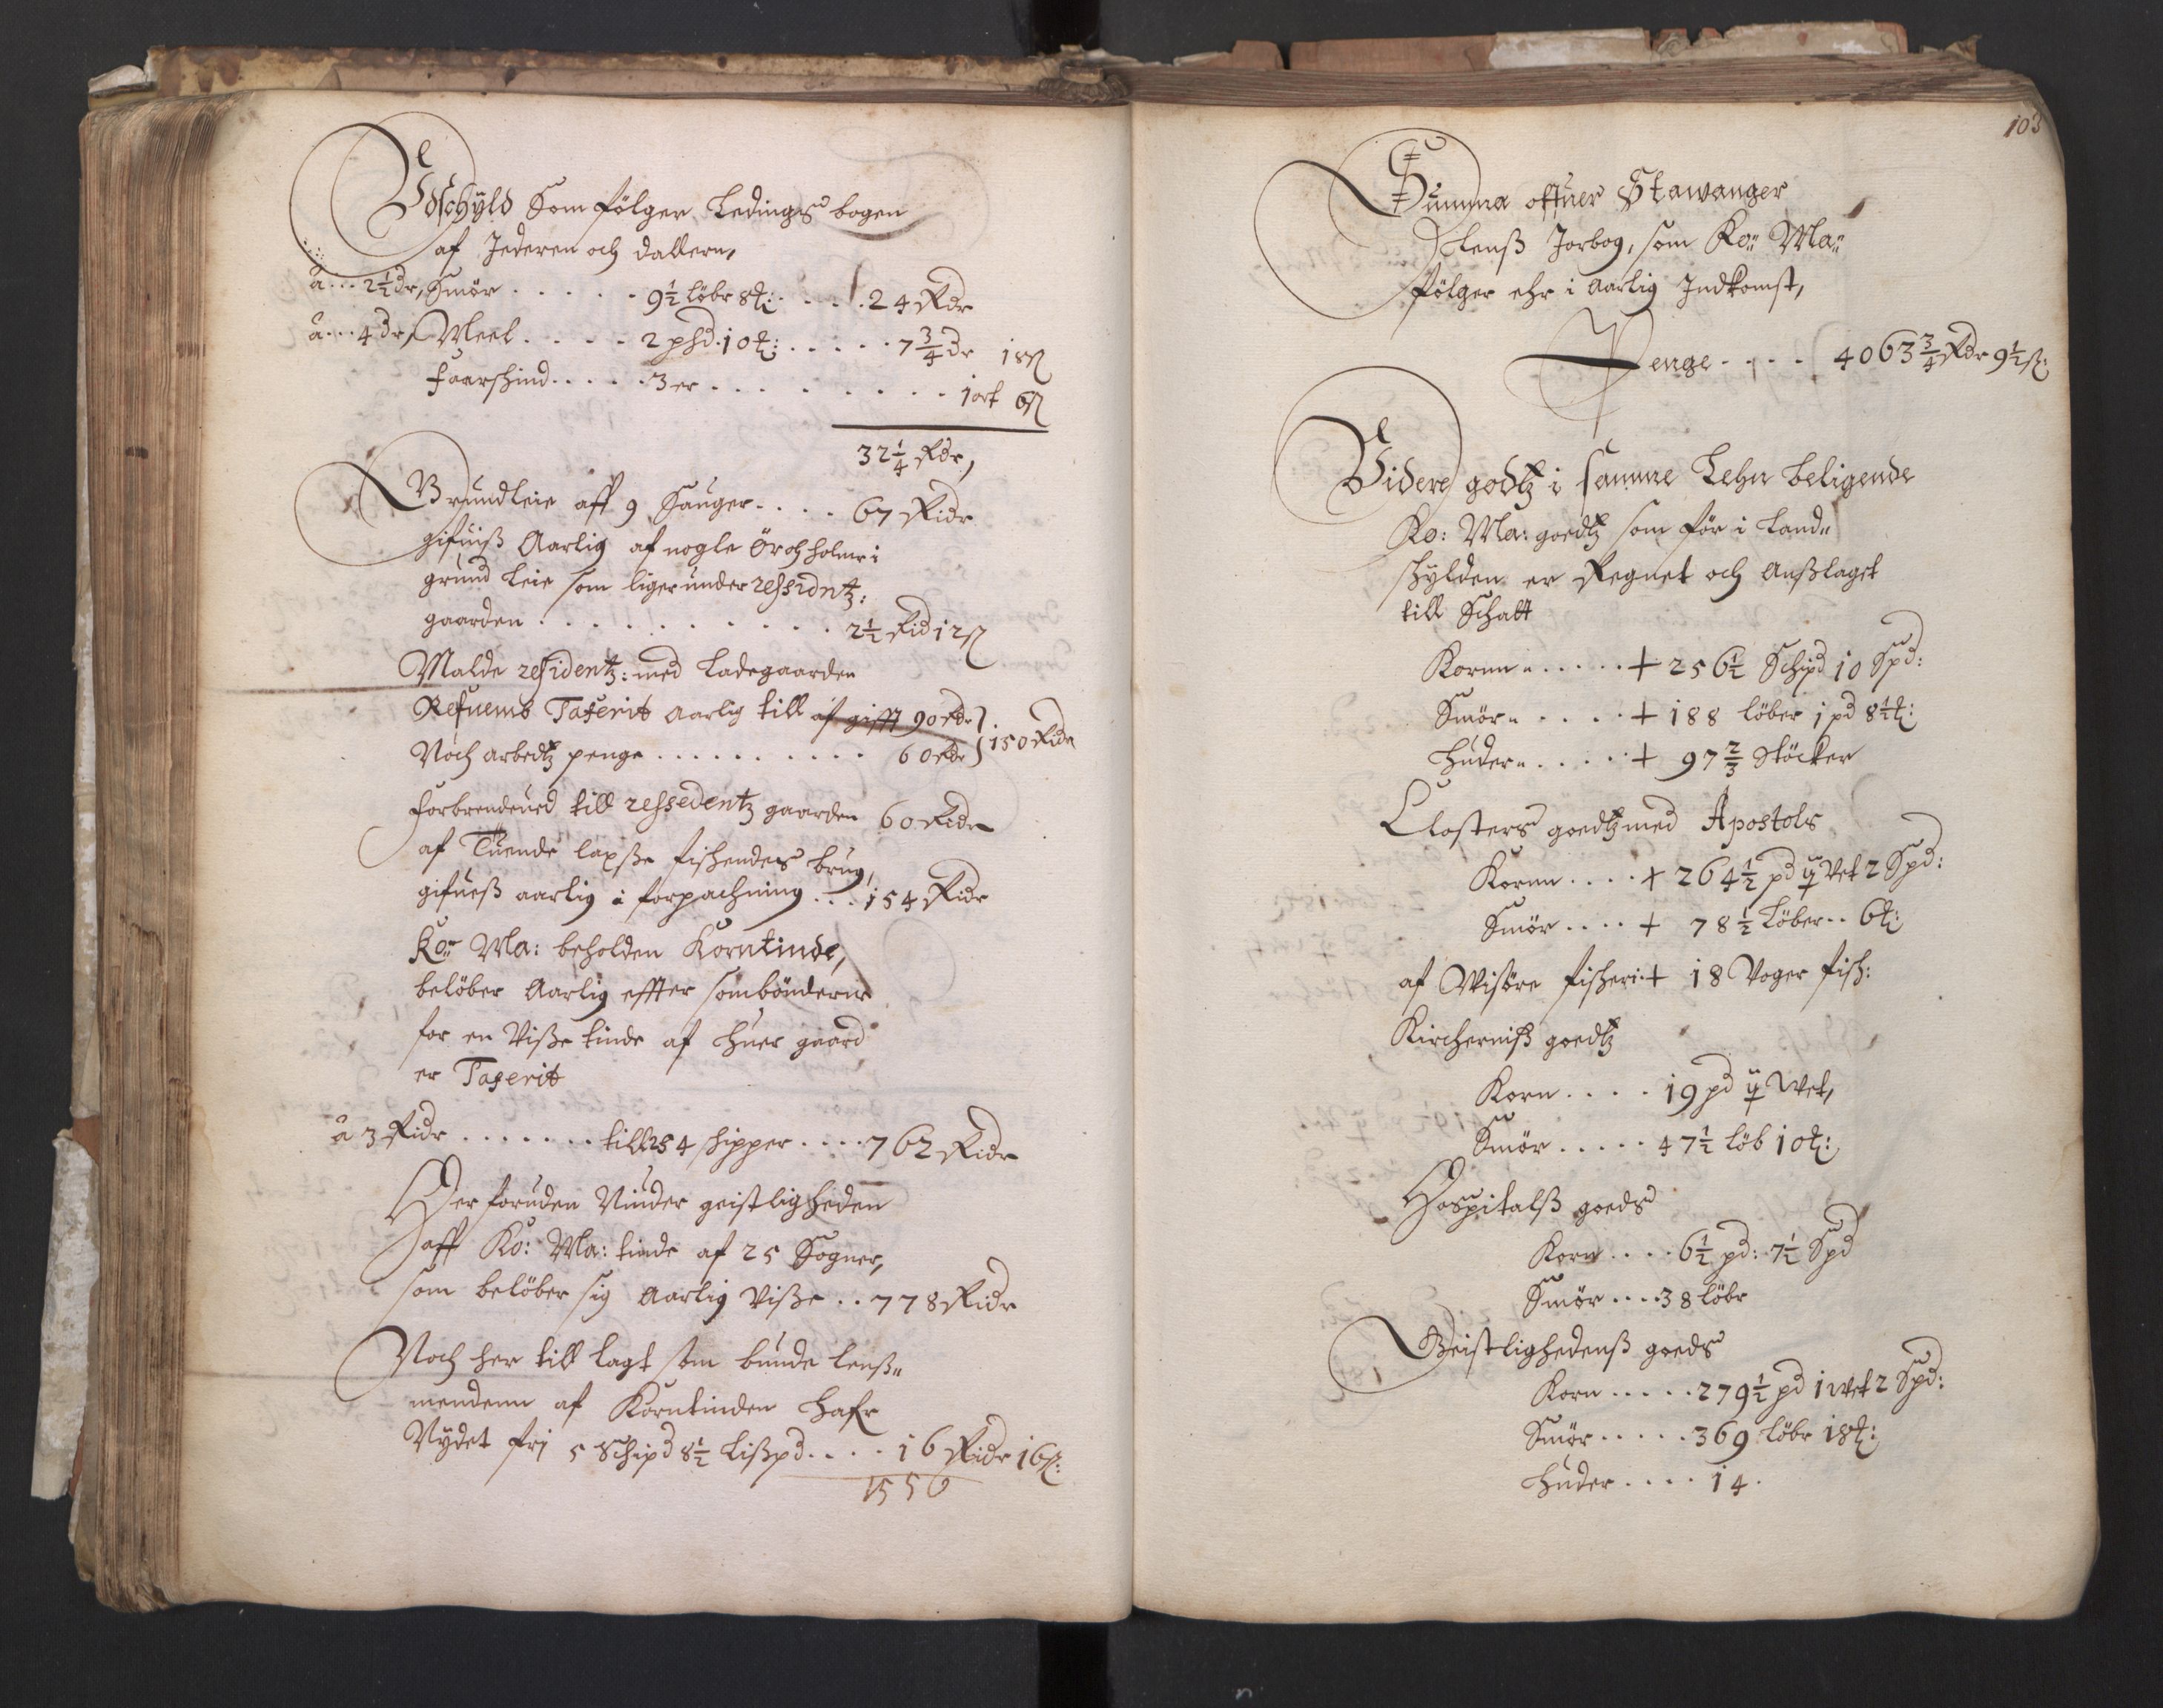 Udschÿld Som følger Ledings bogen
af Jederen och dallern,
a... 2½ dr, Smør . . . . . 9½ løbr 8 ℔: . . . . 24 Rdr
a... 4 dr, Meel. . . . . 2 phd. 10 ℔: . . . . . 7¾ dr 18 ß
faarskind. . . . . 3 er . . . . . . . . . 1 ort 6 ß
32¼ Rdr,
Grundleie aff 9 Sauger. . . . 67 Ridr
gifuiß Aarlig af nogle Ør och holmer i
grund Leie som liger under ressidntz:
gaarden . . . . . . . . . . . 2½ Rid 12 ß
Malde residentz: med Ladegaarden
Refuens Taxerit Aarlig till afgifft 90 rdr
Noch arbedtz penge . . . . . . . . . . 60 rdr } 150 Ridr
forbrendeued till ressedentz gaarden 60 Ridr
af Tuende laxße fischendes brug,
gifueß aarlig i forpachning . . . 154 Ridr
Ko: Ma: beholden Korntinde,
beløber Aarlig effter som bønderne
for en Viße tinde af huer gaard
er Taxerit
a 3 Ridr . . . . . . . till 254 schipper . . . . 762 Ridr
Her foruden Vinder geistligheden
aff Ko: Ma: tinde af 25 Sogner,
som beløber sig Aarlig Viße . . 778 Ridr
Noch her till lagt som bunde lenß„
mendenn af Korntinden hafr
Nÿdet frj 5 Schipd 8½ Lißpd. . . . 16 Ridr 16 ß:
1556
103
Summa offuer Stawanger
Lenß Jorbog, som Ko: Ma:
følger ehr i Aarlig Indkomst,
Penge . . . . 4063¾ Rdr 9½ ß:
Videre godtz i samme Lehn beligende
Ko: Ma: goedtz som før i Land„
schÿlden er Regnet och Anßlaget
till Schatt
Kornn . . . . . + 256½ Schipd 10 Spd:
Smør . . . . . + 188 løber 1 pd 8½ ℔:
huder . . . . . + 97⅔ Støcker
Closters goedtz med Apostols
Kornn . . . . + 264½ pd 4 Vet 2 Spd:
Smør . . . . + 78½ Løber . . 6 ℔:
af Wisøre fischeri + 18 Voger fisch:
Kircherniß goedtz
Korn . . . . 19 pd 4 Wet,
Smør . . . . . 47½ løb 10 ℔:
Hospitalß goeds
Korn . . . . 6½ pd: 7½ Spd
Smør . . . . 38 løbr
Geistlighedenß goeds
Korn . . . . . 279½ pd 1 Wet 2 Spd:
Smør . . . . . 369 løbr 18 ℔:
huder . . . . 14.